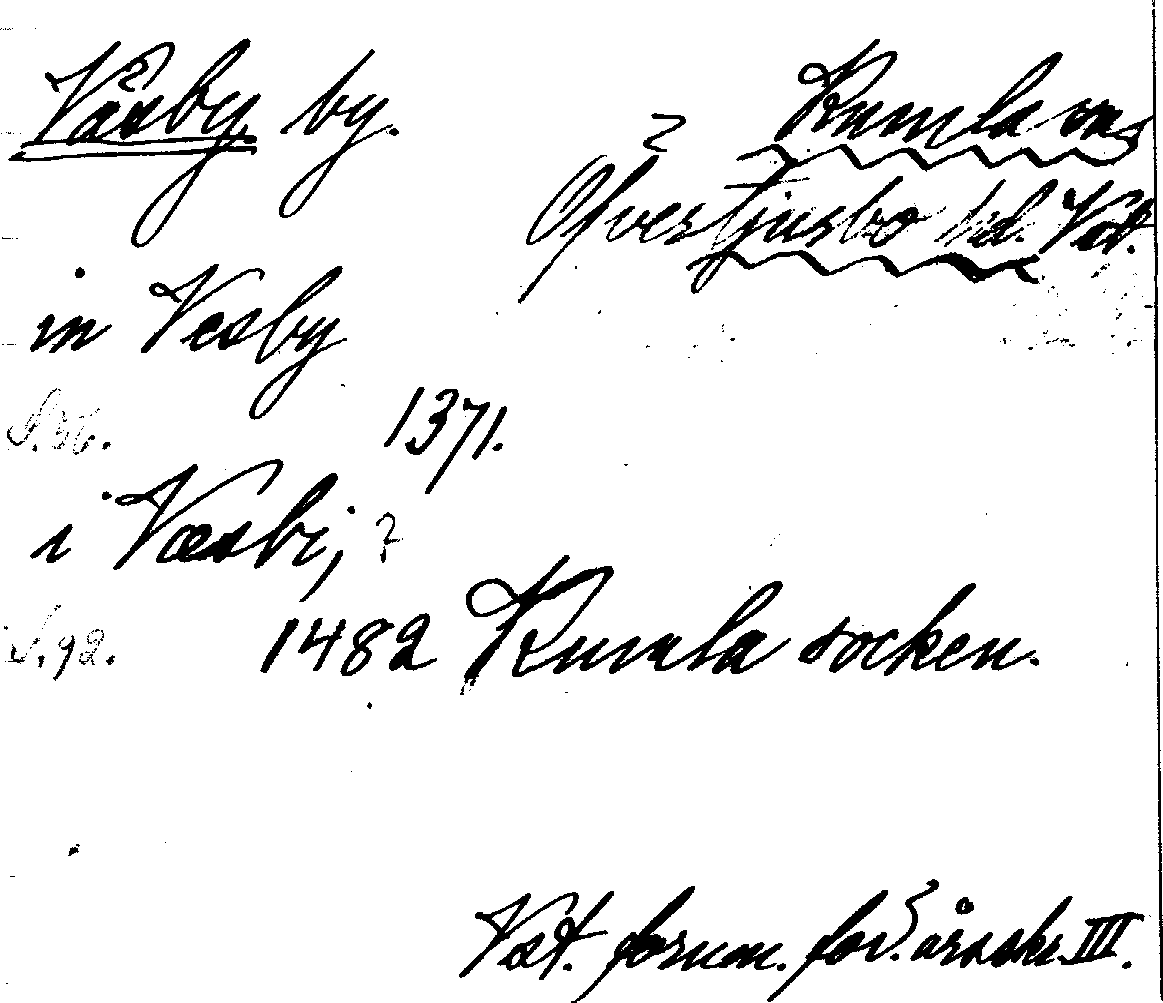 Väsby by. Kumla sn,
Öfvertjurbo hd. Vstl.
in Vesby
S. 36. 1371.
i Væsbi, ?
S. 92. 1482 Kumla socken.
Vst. fornm. för. årsskr. III.